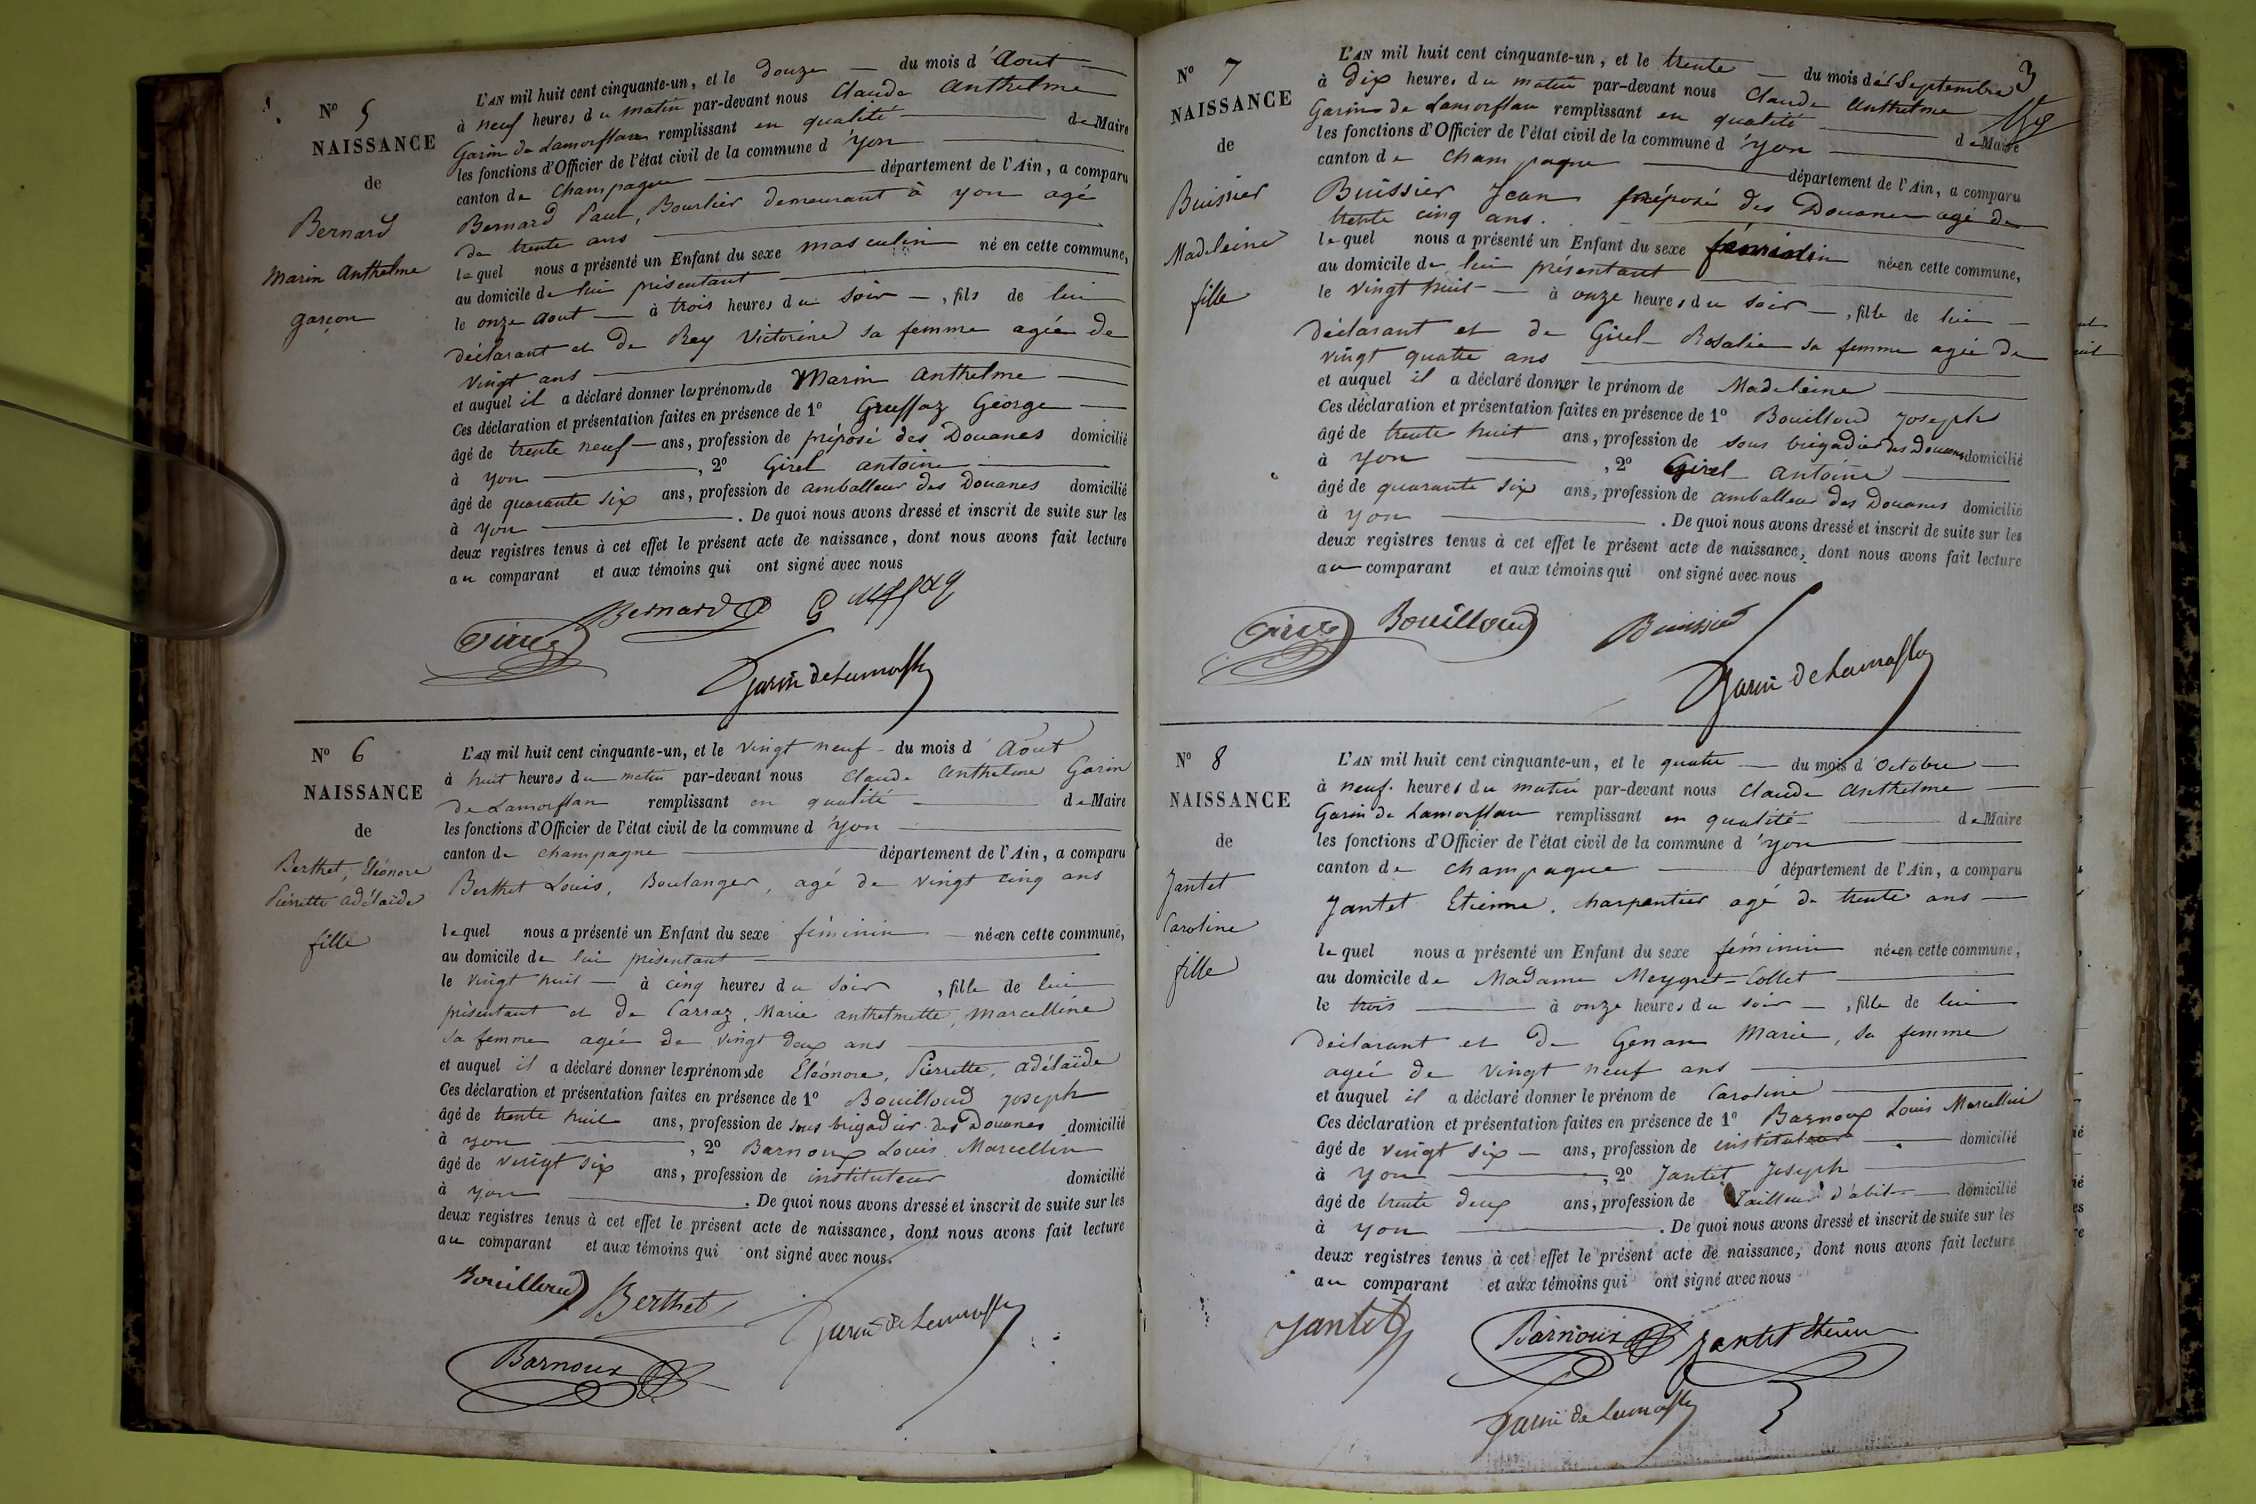 N° 5
NAISSANCE
de
Bernard
Marin Anthelme
garçon
L'AN mil huit cent cinquante-un, et le douze — du mois d'Aout —
à neuf heures du matin par-devant nous Claude Anthelme
Garin de Lamorflan remplissant en qualité — de Maire
les fonctions d'Officier de l'état civil de la commune d'Yon —
canton de Champagne — département de l'Ain, a comparu
Bernard Paul, Bourlier demeurant à yon agé
de trente ans —
lequel nous a présenté un Enfant du sexe masculin né en cette commune,
au domicile de lui présentant —
le onze aout — à trois heures du soir —, fils de lui
déclarant et de Rey Victorine sa femme agée de
vingt ans —
et auquel il a déclaré donner les prénoms de Marin Anthelme —
Ces déclaration et présentation faites en présence de 1° Gruffaz George —
âgé de trente neuf — ans, profession de préposé des Douanes domicilié
à yon —, 2° Girel antoine —
âgé de quarante six ans, profession de amballeur des Douanes domicilié
à yon —. De quoi nous avons dressé et inscrit de suite sur les
deux registres tenus à cet effet le présent acte de naissance, dont nous avons fait lecture
au comparant et aux témoins qui ont signé avec nous
Bernard
Garin de Lamorflan
N° 6
NAISSANCE
de
Berthet, Eléonore
Pierrette adélaïde
fille
L'AN mil huit cent cinquante-un, et le vingt neuf - du mois d'Aout
à huit heures du matin par-devant nous Claude Anthelme Garin
de Lamorflan remplissant en qualité — de Maire
les fonctions d'Officier de l'état civil de la commune d'Yon —
canton de champagne — département de l'Ain, a comparu
Berthet Louis, Boulanger, agé de vingt cinq ans
lequel nous a présenté un Enfant du sexe féminin — née en cette commune,
au domicile de lui présentant —
le vingt huit — à cinq heures du soir, fille de lui
présentant et de Carraz, Marie anthelmette, Marcelline
sa femme agée de vingt deux ans —
et auquel il a déclaré donner les prénoms de Eléonore, Pierrette, adélaïde
Ces déclaration et présentation faites en présence de 1° Bouilloud joseph
âgé de trente huit ans, profession de sous brigadier des Douanes domicilié
à yon —, 2° Barnoux Louis Marcellin
âgé de vingt six ans, profession de instituteur domicilié
à yon —. De quoi nous avons dressé et inscrit de suite sur les
deux registres tenus à cet effet le présent acte de naissance, dont nous avons fait lecture
au comparant et aux témoins qui ont signé avec nous.
Bouilloud Berthet Garin de Lamorflan
Barnoux
3
N° 7
NAISSANCE
de
Buissier
Madeleine
fille
L'AN mil huit cent cinquante-un, et le trente — du mois de Septembre
à dix heures du matin par-devant nous Claude Anthelme
Garin de Lamorflan remplissant en qualité — de Maire
les fonctions d'Officier de l'état civil de la commune d'Yon —
canton de champagne — département de l'Ain, a comparu
Buissier Jean préposé des Douanes agé de
trente cinq ans. —
lequel nous a présenté un Enfant du sexe féminin née en cette commune,
au domicile de lui présentant —
le vingt huit — à onze heures du soir —, fille de lui —
déclarant et de Girel Rosalie sa femme agée de
vingt quatre ans —
et auquel il a déclaré donner le prénom de Madeleine —
Ces déclaration et présentation faites en présence de 1° Bouilloud joseph
âgé de trente huit ans, profession de sous brigadier des Douanes domicilié
à yon —, 2° Girel Antoine —
âgé de quarante six ans, profession de amballeur des Douanes domicilié
à yon —. De quoi nous avons dressé et inscrit de suite sur les
deux registres tenus à cet effet le présent acte de naissance, dont nous avons fait lecture
au comparant et aux témoins qui ont signé avec nous
Bouilloud Buissier
Garin de Lamorflan
N° 8
NAISSANCE
de
Jantet
Caroline
fille
L'AN mil huit cent cinquante-un, et le quatre — du mois d'Octobre —
à neuf heures du matin par-devant nous Claude Anthelme —
Garin de Lamorflan remplissant en qualité — de Maire
les fonctions d'Officier de l'état civil de la commune d'Yon —
canton de champagne — département de l'Ain, a comparu
Jantet Etienne, charpentier agé de trente ans —
lequel nous a présenté un Enfant du sexe féminin née en cette commune,
au domicile de Madame Meygret-Collet —
le trois — à onze heures du soir —, fille de lui
déclarant et de Genan Marie, sa femme
agée de vingt neuf ans —
et auquel il a déclaré donner le prénom de Caroline —
Ces déclaration et présentation faites en présence de 1° Barnoux Louis Marcellin
âgé de vingt six — ans, profession de instituteur — domicilié
à yon —, 2° Jantet Joseph —
âgé de trente deux ans, profession de Tailleur d'abit — domicilié
à yon —. De quoi nous avons dressé et inscrit de suite sur les
deux registres tenus à cet effet le présent acte de naissance, dont nous avons fait lecture
au comparant et aux témoins qui ont signé avec nous
Jantet Barnoux Jantet Etienne
Garin de Lamorflan